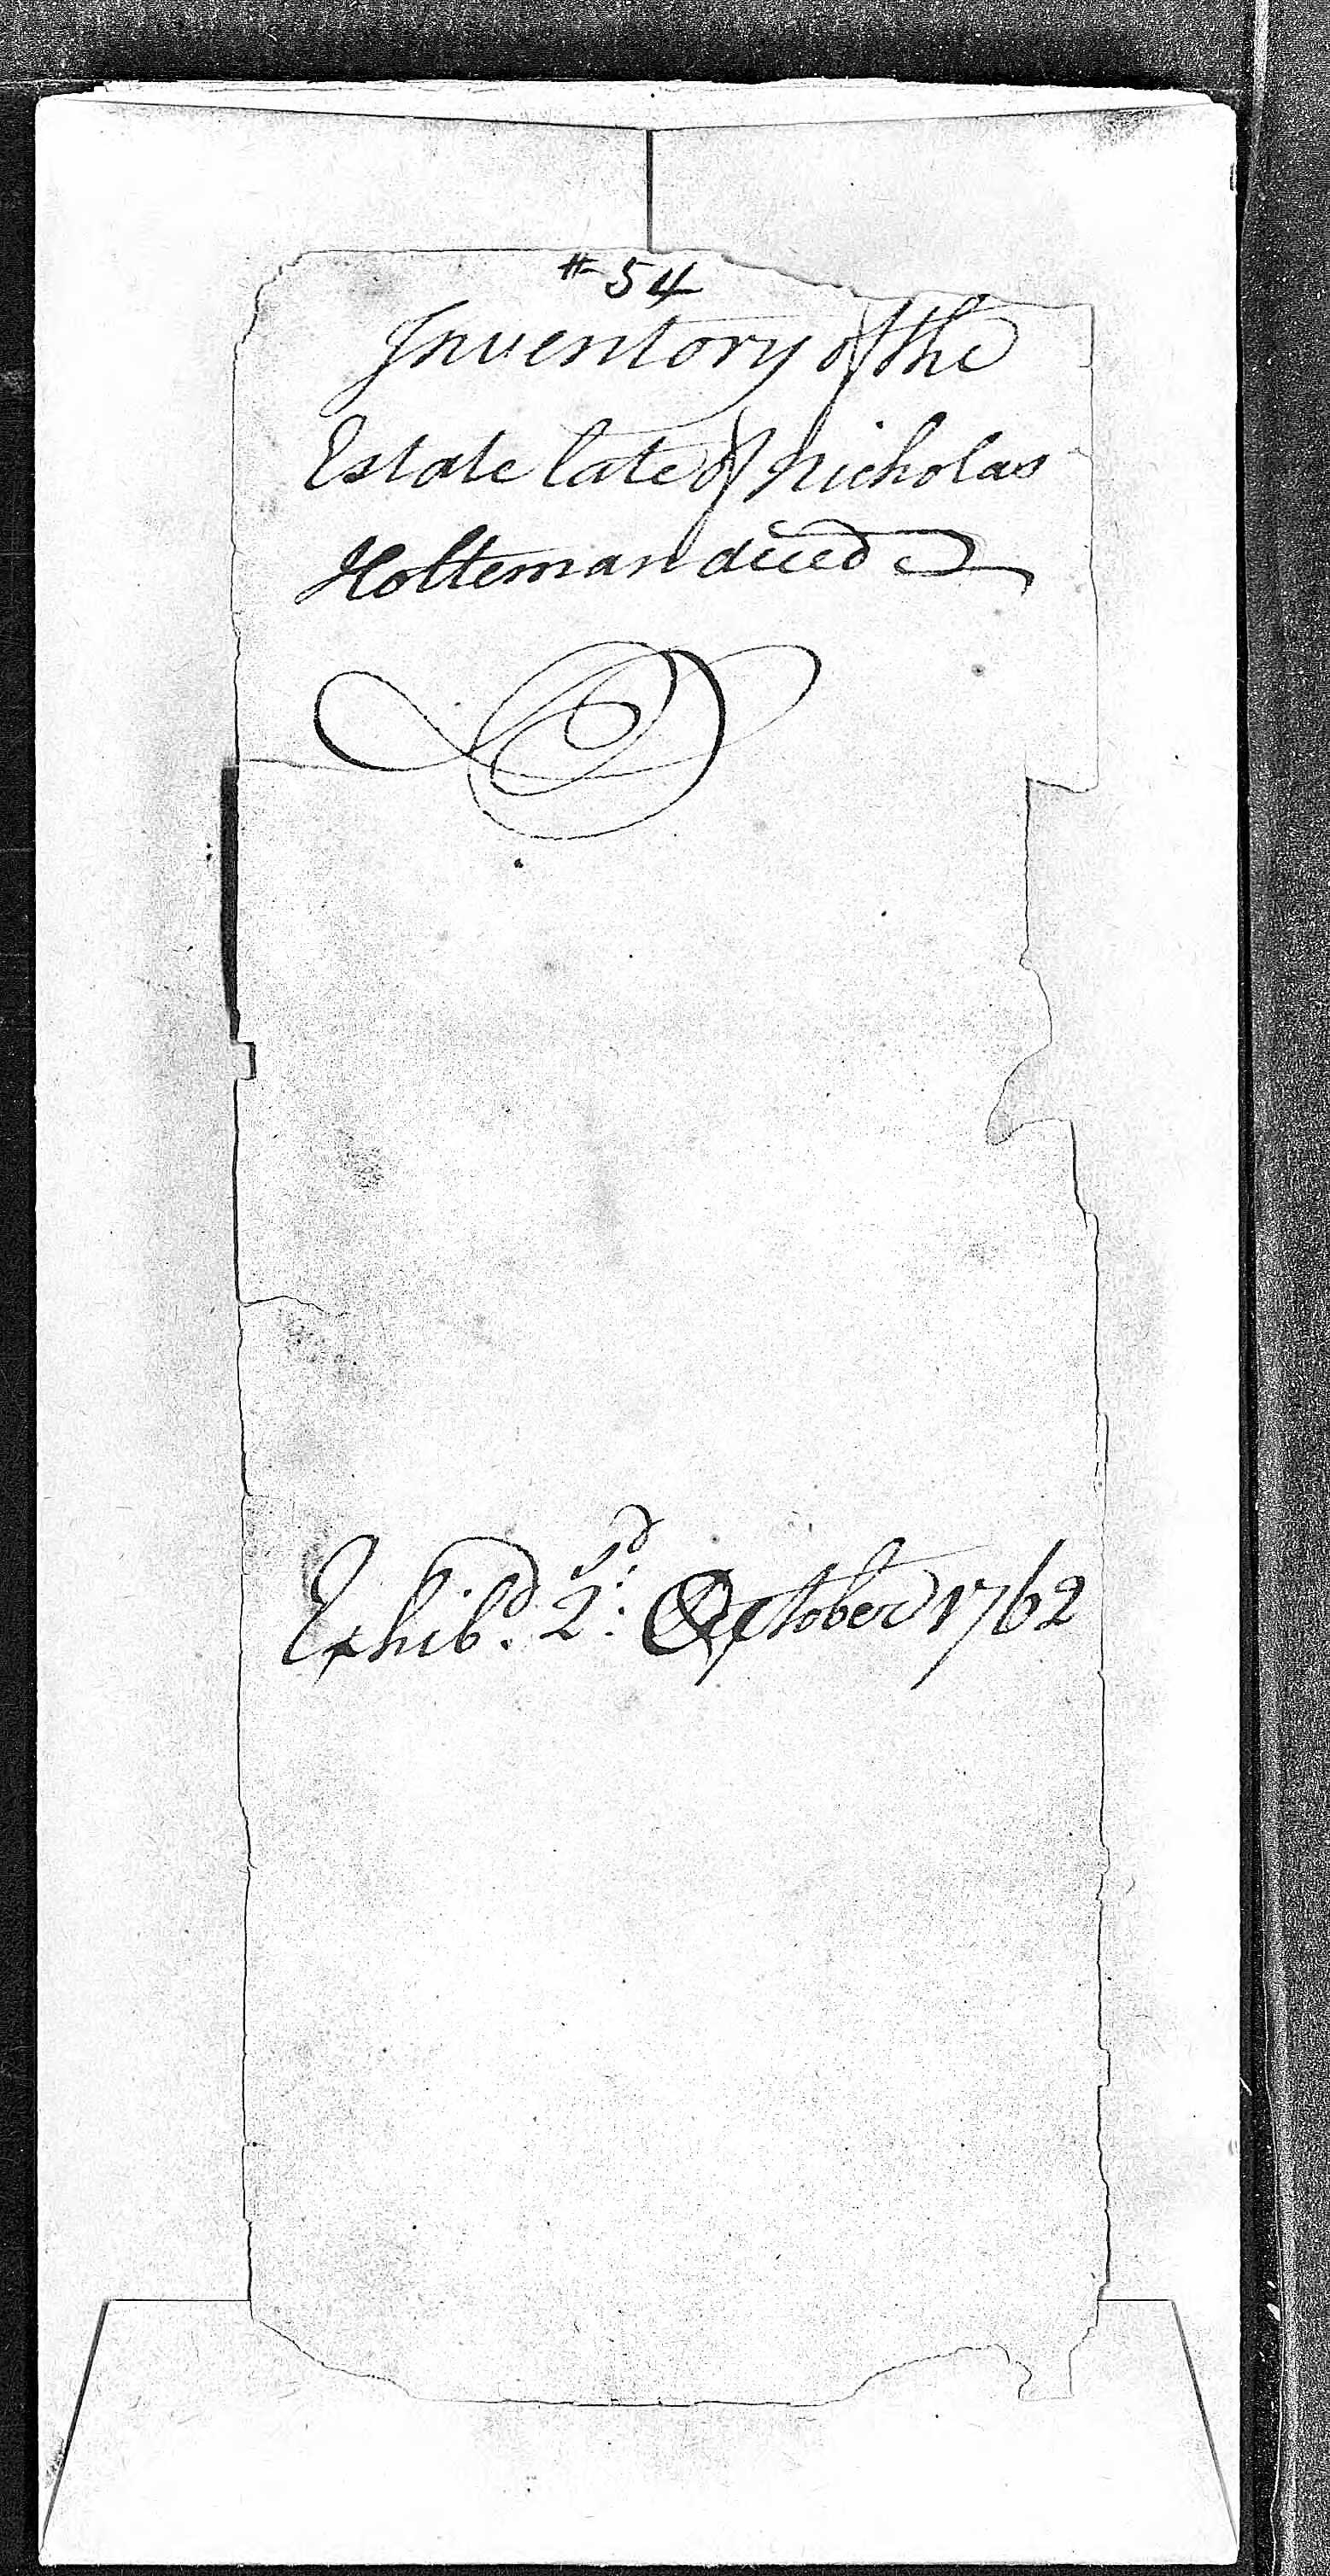 #54
Inventory of the
Estate late of Nicholas
Holteman deced
Exhib.d 2.d October 1762